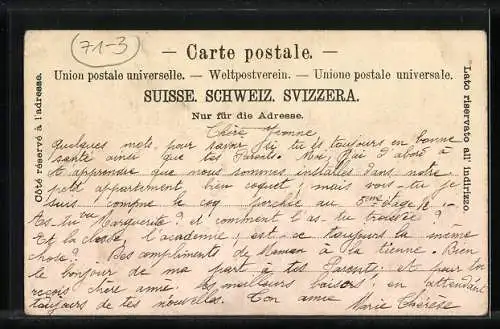 71-3
— Carte postale. —
Union postale universelle. — Weltpostverein. — Unione postale universale.
SUISSE. SCHWEIZ. SVIZZERA.
Nur für die Adresse.
Côté réservé à l'adresse.
Lato riservato all' indirizzo.
Chère Yvonne
Quelques mots pour savoir si tu es toujours en bonne
santé ainsi que tes Parents. Moi, j'ai d'abord à
t'apprendre que nous sommes installés dans notre
petit appartement bien coquet; mais vois-tu je
suis comme le coq perchée au 5ème étage!
As-tu vu Marguerite? et comment l'as-tu trouvée?
Et la classe, l'académie; est-ce toujours la même
chose? Des compliments de Maman à la tienne. Bien
le bonjour de ma part à tes Parents; et pour toi
reçois chère amie les meilleurs baisers; en attendant
toujours de tes nouvelles. Ton amie
Marie Thérèse